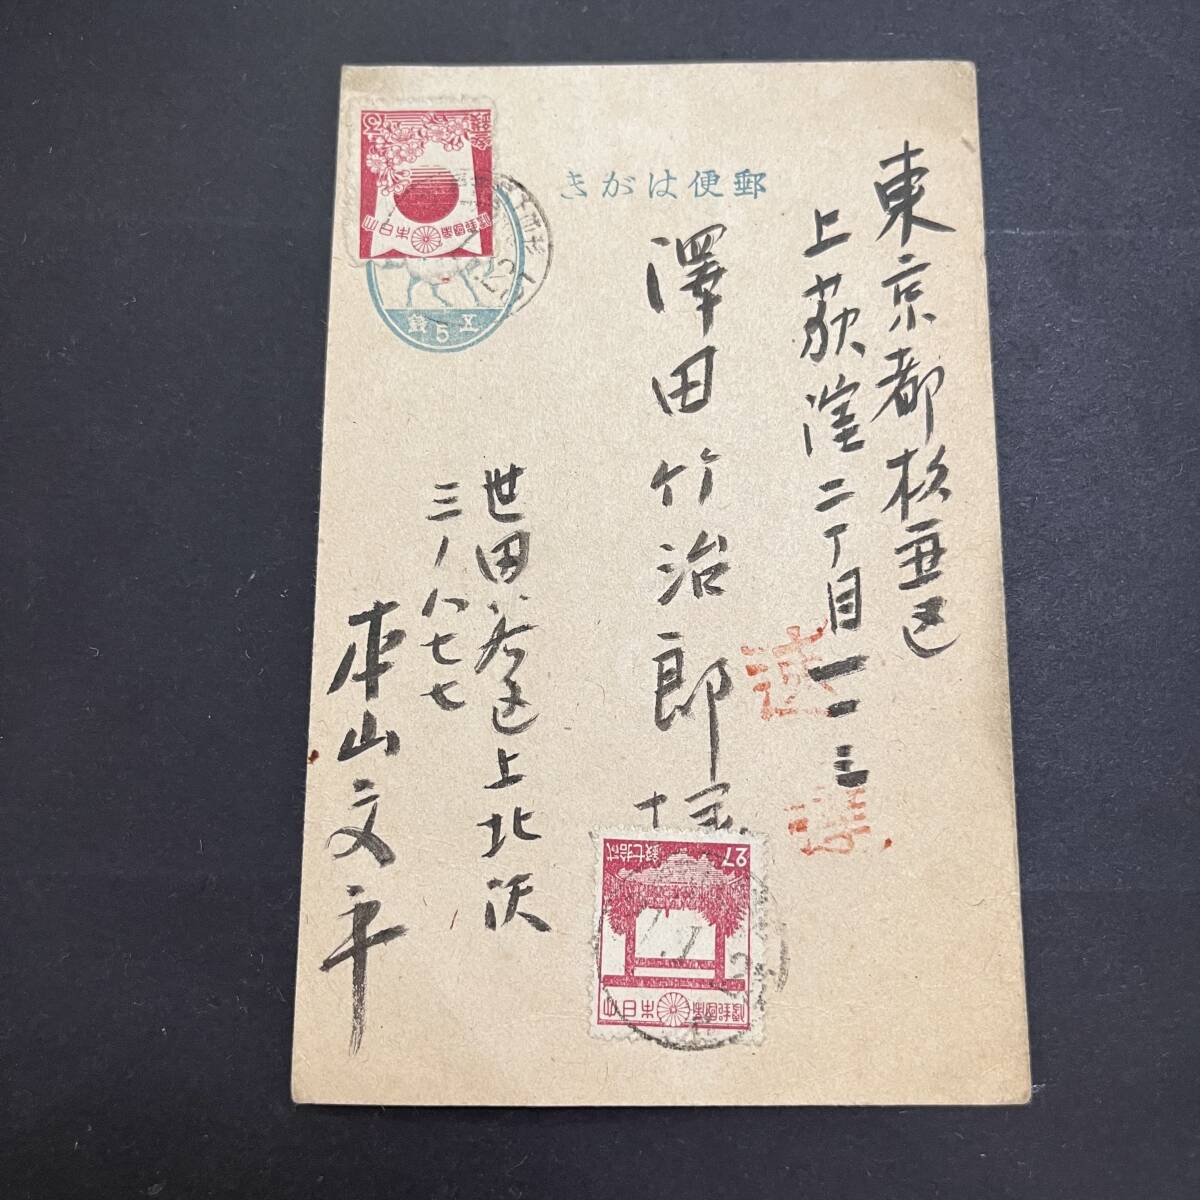 郵便はがき
東京都杉並区
上荻窪二丁目一一三
澤田竹治郎様
速達
世田谷区上北沢
三ノ八七七
本山文平
五5銭
参銭
3
大日本帝国郵便
27
弐拾七銭
大日本帝国郵便